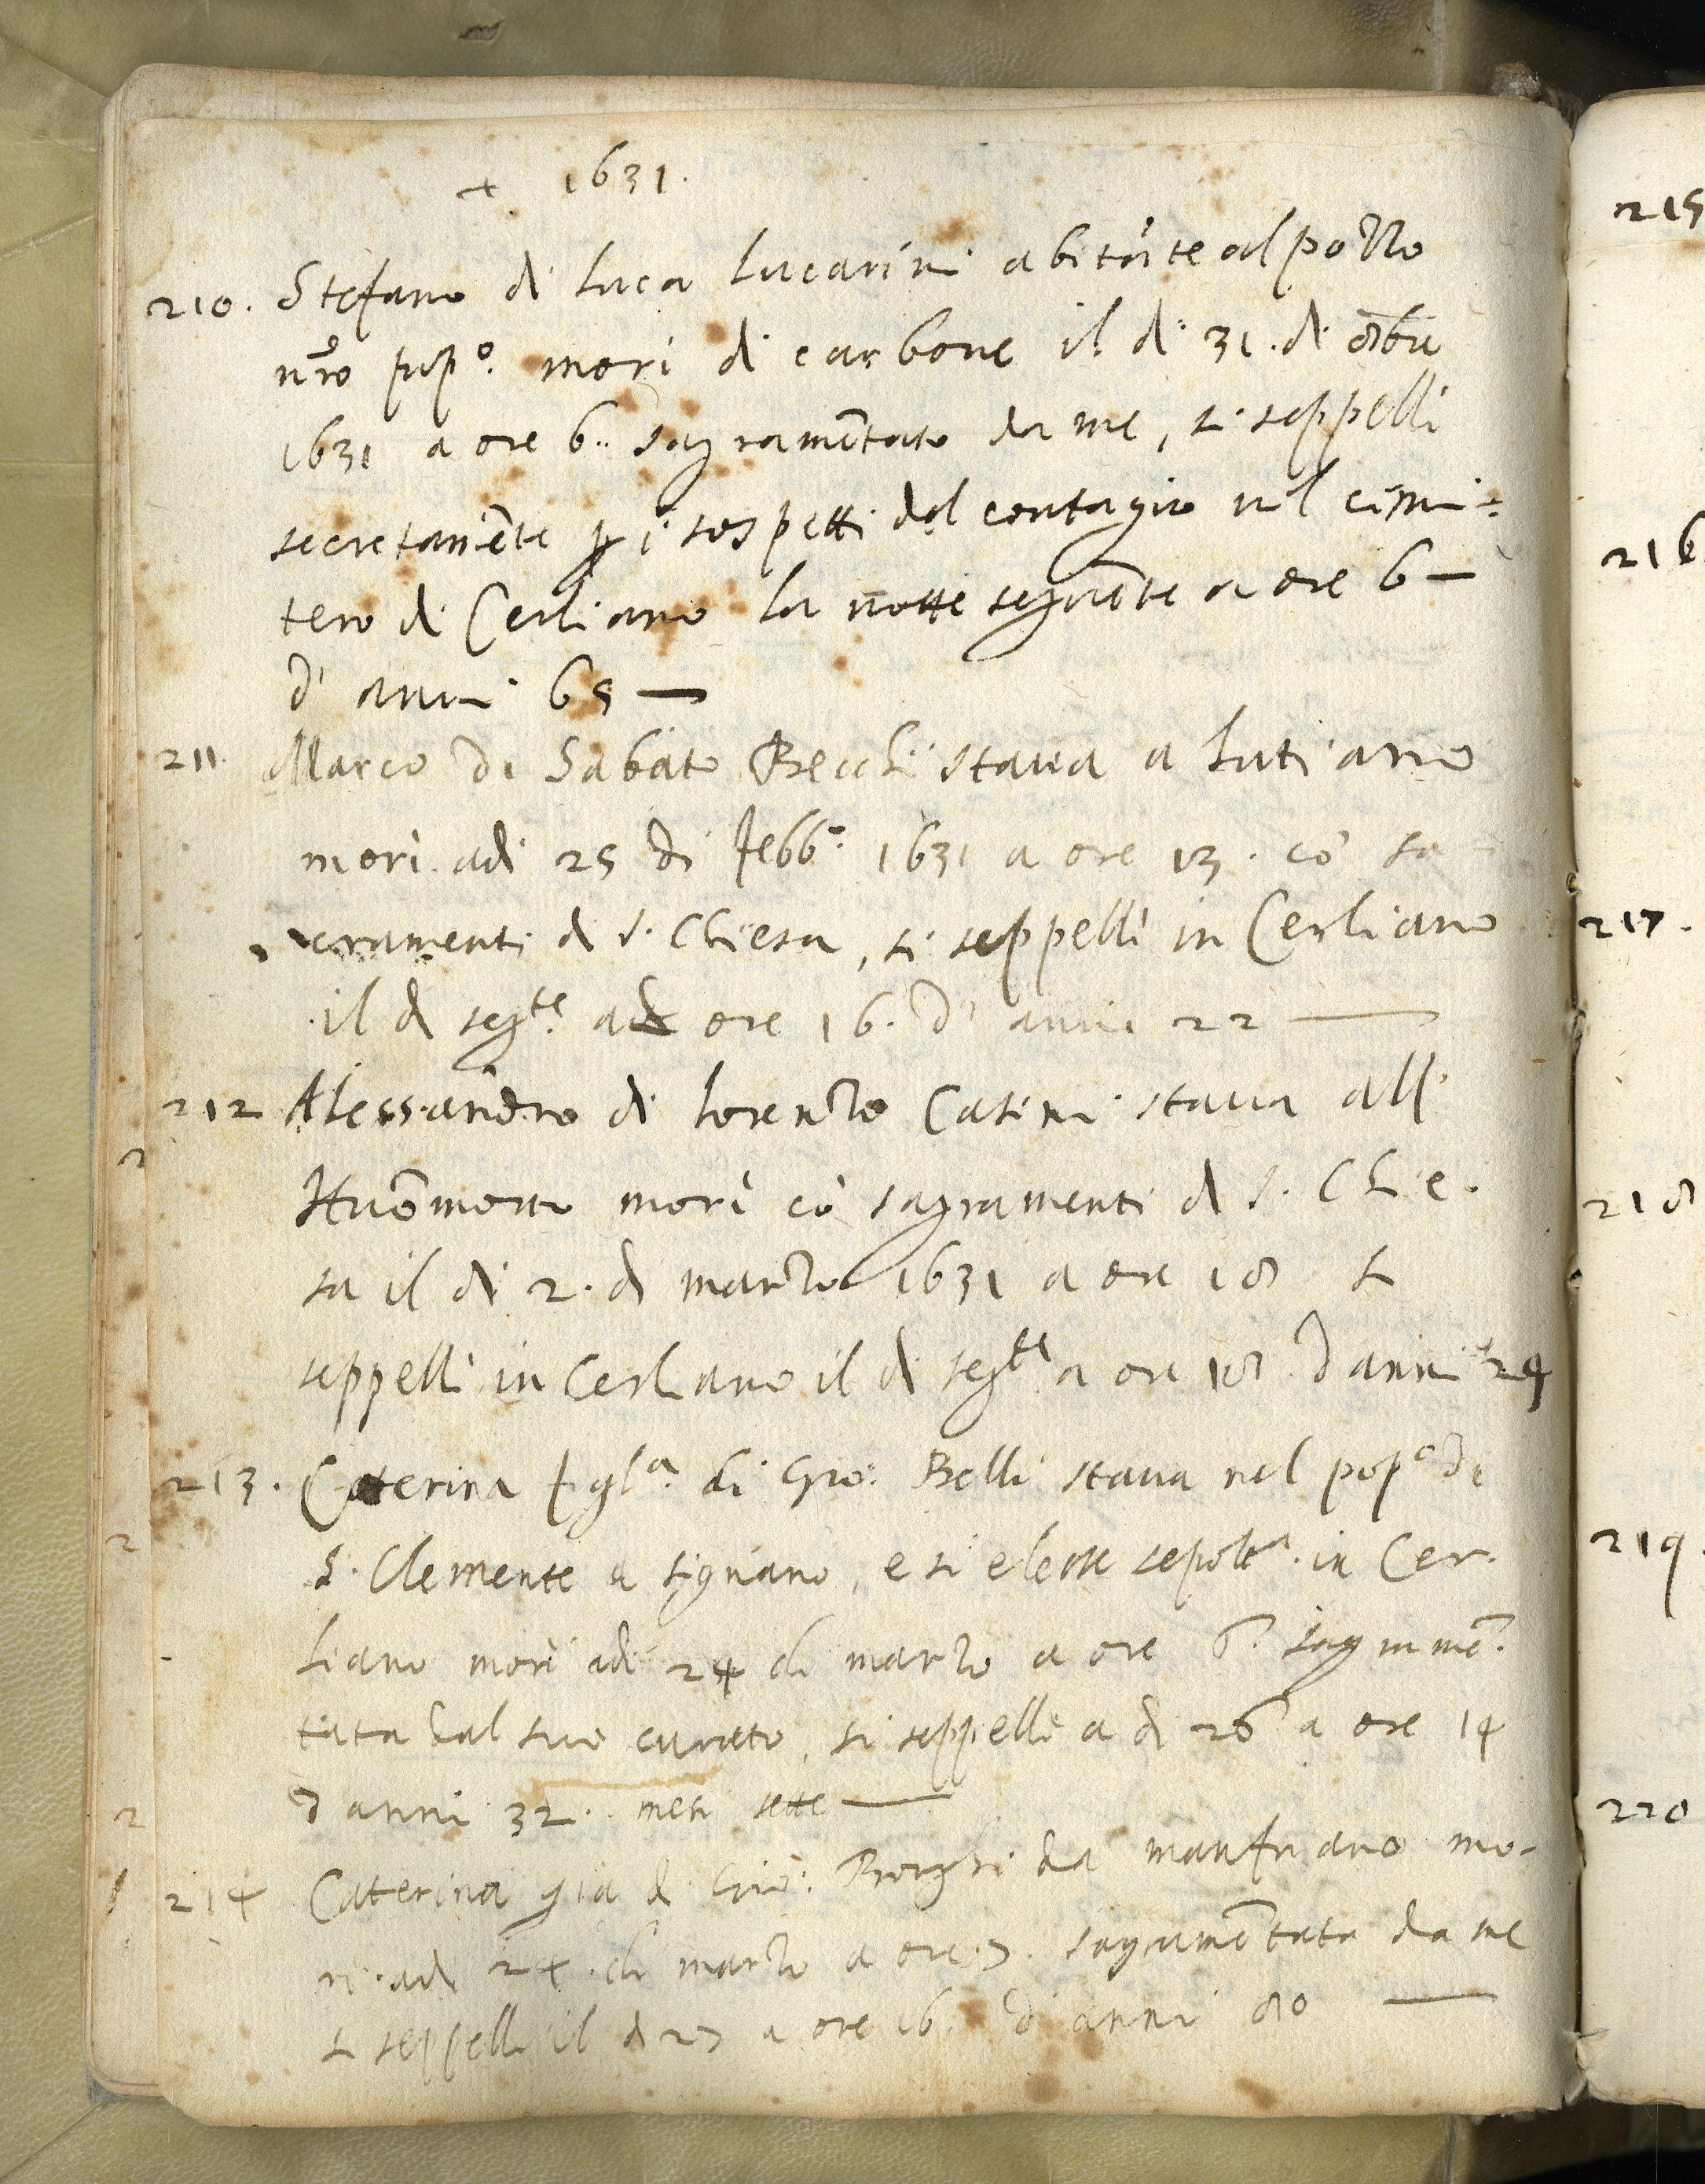 + 1631.
210. Stefano di Luca Lucarini abitāte al pozzo
nrō pop.º morì di carbone il dì 31. di
1631 a ore 6.. sagramētato da me, si seppellì
secretamēte p i sospetti del contagio nel cimi=
tero di Cerliano la notte seguēte a ore 6 —
d' anni 65 —
211. Marco di Sabato Recchi staua a Lutiano
morì adi 25 di febb.º 1631 a ore 13. cō sa-
cramenti di S. Chiesa, si seppellì in Cerliano
il dì seg.te a ore 16. d' anni 22 —
212 Alessandro di Lorenzo Casini staua all'
Huōmorto morì cō sagramenti di S. Chie.
sa il dì 2. di marzo 1631 a ore 18 si
seppellì in Cerliano il dì seg.te a ore 18 d anni 24
213. Caterina figl.a di Gio: Belli staua nel pop.º di
S. Clemente a Signano, e si elesse sepolt.a in Cer.
liano morì adi 24 di marzo a ore 6. sagramē.
tata dal suo curato, si seppellì a dì 26 a ore 14
d anni 32. mesi sette —
214 Caterina già di Gio: Borghi da manfriano mo-
rì. adi 24. di marzo a ore 7. sagramētata da me
si seppellì il dì 27 a ore 16. d' anni 80 —
215
216
217.
218
219.
220